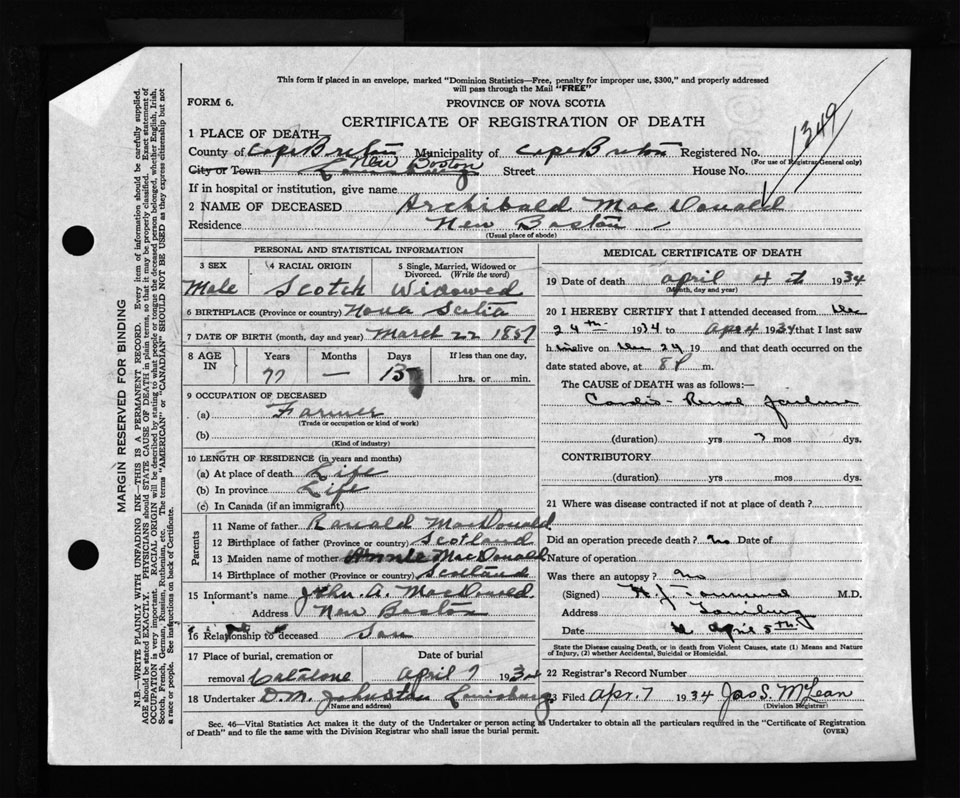 This form if placed in an envelope, marked "Dominion Statistics—Free, penalty for improper use, $300," and properly addressed
will pass through the Mail "FREE"
FORM 6.
PROVINCE OF NOVA SCOTIA
CERTIFICATE OF REGISTRATION OF DEATH
1349
1 PLACE OF DEATH
County of Cape Breton Municipality of Cape Breton Registered No.
(For use of Registrar General only)
City or Town New Boston Louisburg Street House No.
If in hospital or institution, give name
2 NAME OF DECEASED Archibald MacDonald
Residence New Boston
(Usual place of abode)
PERSONAL AND STATISTICAL INFORMATION
3 SEX 4 RACIAL ORIGIN 5 Single, Married, Widowed or Divorced. (Write the word)
Male Scotch Widowed
6 BIRTHPLACE (Province or country) Nova Scotia
7 DATE OF BIRTH (month, day and year) March 22 1857
8 AGE IN Years Months Days If less than one day,
77 — 13 hrs. or min.
9 OCCUPATION OF DECEASED
(a) Farmer
(Trade or occupation or kind of work)
(b)
(Kind of industry)
10 LENGTH OF RESIDENCE (in years and months)
(a) At place of death Life
(b) In province Life
(c) In Canada (if an immigrant)
Parents
11 Name of father Ranald MacDonald
12 Birthplace of father (Province or country) Scotland
13 Maiden name of mother Annie MacDonald
14 Birthplace of mother (Province or country) Scotland
15 Informant's name John A. MacDonald
Address New Boston
16 Relationship to deceased Son
17 Place of burial, cremation or removal Date of burial
Catalone April 7 1934
18 Undertaker D.M. Johnston Louisburg
(Name and address)
MEDICAL CERTIFICATE OF DEATH
19 Date of death April 4th 1934
(Month, day and year)
20 I HEREBY CERTIFY that I attended deceased from
24th 1934 to Apr 4 1934 that I last saw
him alive on 29 19 and that death occurred on the
date stated above, at 8 P m.
The CAUSE OF DEATH was as follows:—
Cardio-Renal Failure
(duration) yrs 3 mos dys.
CONTRIBUTORY
(duration) yrs. mos. dys.
21 Where was disease contracted if not at place of death?
Did an operation precede death? No Date of
Nature of operation
Was there an autopsy? No
(Signed) M.D.
Address Louisburg
Date April 5th
State the Disease causing Death, or in death from Violent Causes, state (1) Means and Nature
of Injury, (2) whether Accidental, Suicidal or Homicidal.
22 Registrar's Record Number
23 Filed Apr. 7 1934 Jas S. McLean
(Division Registrar)
Sec. 46—Vital Statistics Act makes it the duty of the Undertaker or person acting as Undertaker to obtain all the particulars required in the "Certificate of Registration
of Death" and to file the same with the Division Registrar who shall issue the burial permit.
(OVER)
MARGIN RESERVED FOR BINDING
N.B.—WRITE PLAINLY WITH UNFADING INK—THIS IS A PERMANENT RECORD. Every item of information should be carefully supplied.
AGE should be stated EXACTLY. PHYSICIANS should STATE CAUSE OF DEATH in plain terms, so that it may be properly classified. Exact statement of
OCCUPATION is very important. RACIAL ORIGIN will be described by stating to what people or tongue the deceased person belonged, whether English, Irish,
Scotch, French, German, Russian, Ruthenian, etc. The terms "AMERICAN" or "CANADIAN" SHOULD NOT BE USED as they express citizenship but not
a race or people. See instructions on back of Certificate.